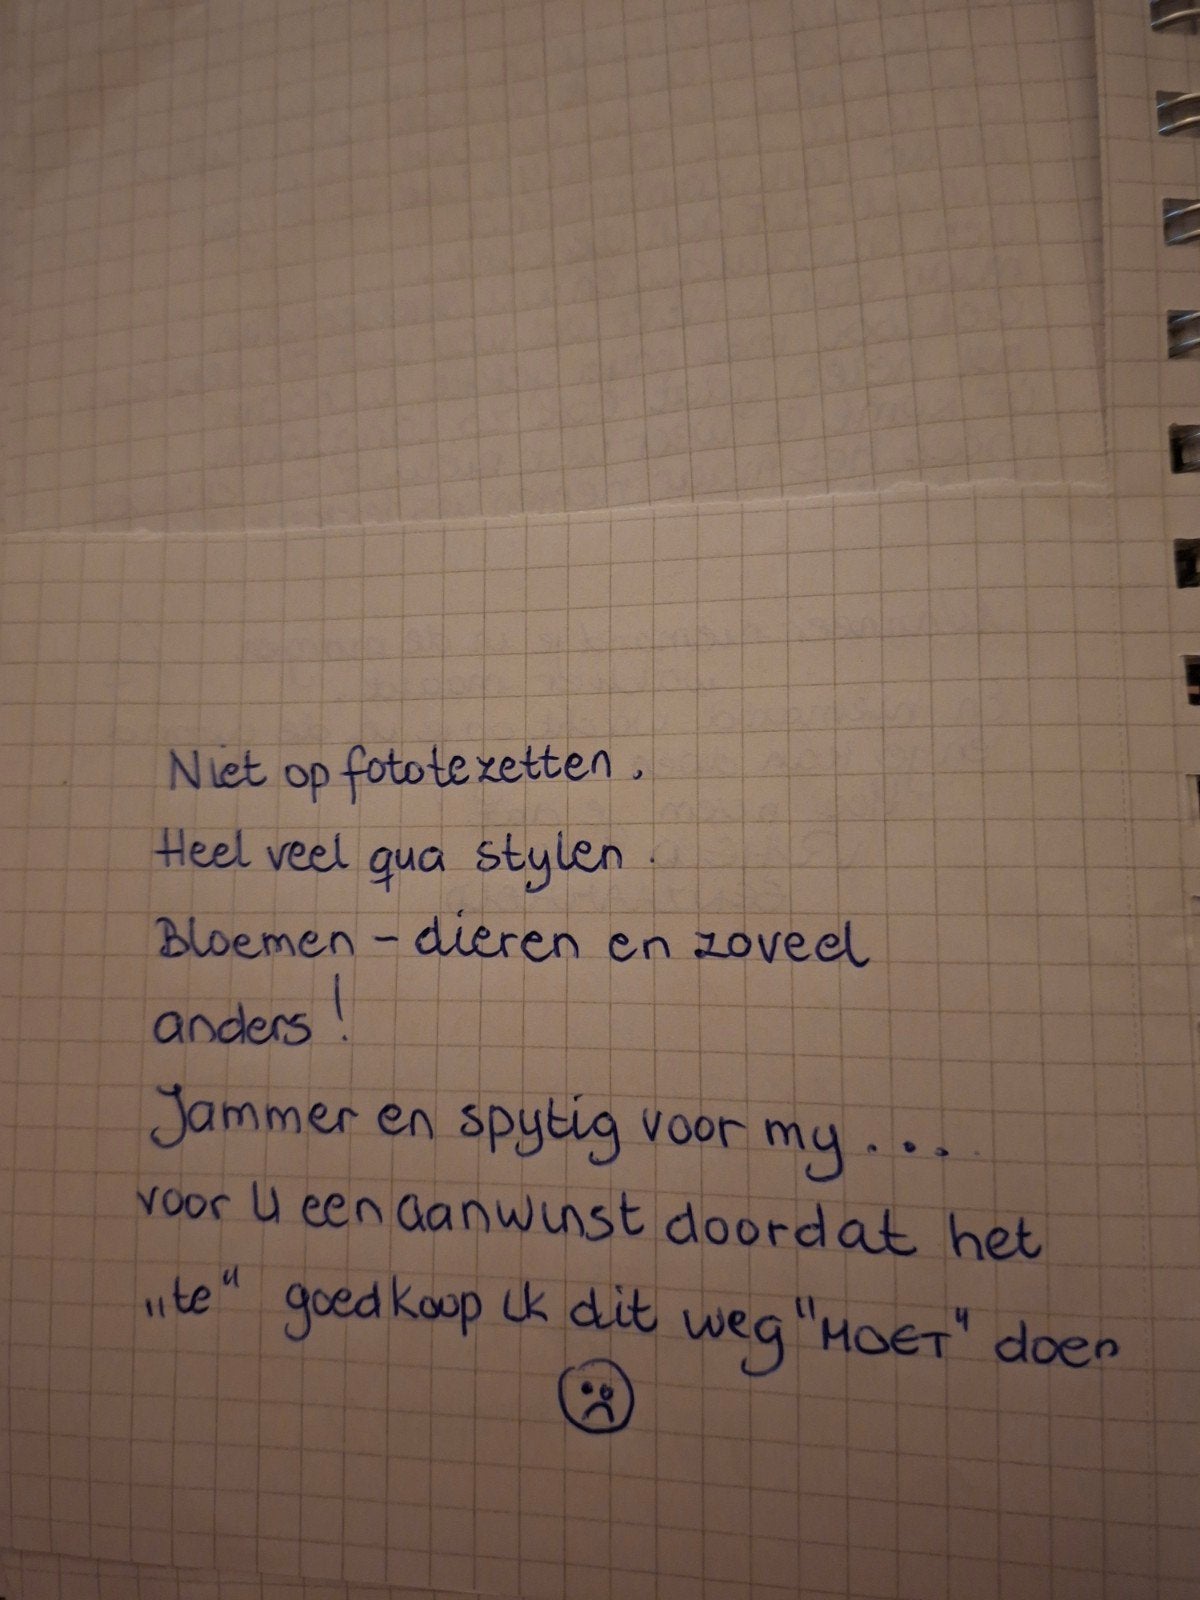 Niet op foto te zetten.
Heel veel qua stylen.
Bloemen - dieren en zoveel
anders!
Jammer en spytig voor my...
voor U een aanwinst doordat het
„te" goedkoop ik dit weg "MOET" doen